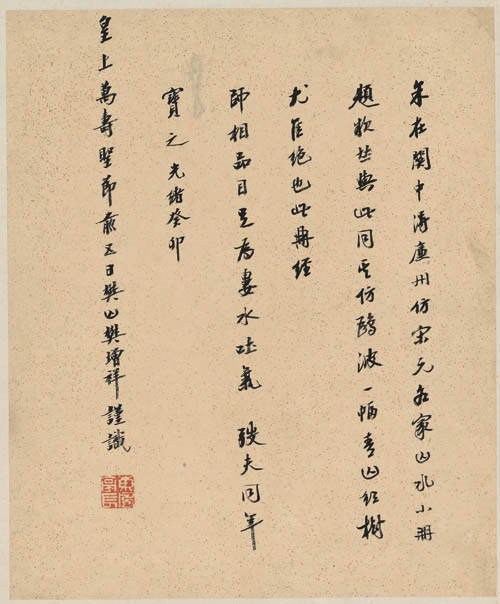 余在關中得廉州仿宋元名家山水小冊
題款悉與此同其仿鷗波一幅青山紅樹
尤佳絕也此冊經
師相品目足為婁水吐氣 夫同年
寶之光緒癸卯
皇上萬壽聖節前五日樊山樊增祥謹識